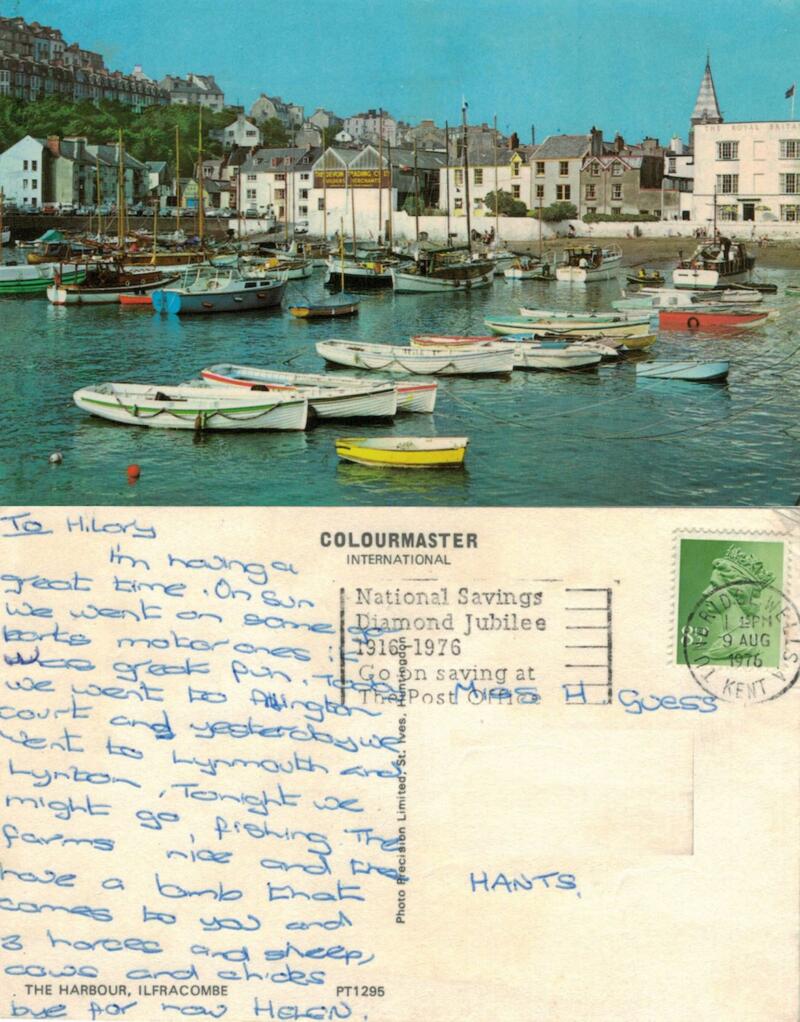 THE DEVON TRADING CO.
BUILDERS MERCHANTS
THE ROYAL BRITA
To Hilary
I'm having a
great time. On Sun
we went on some
boats motor ones it
was great fun. Today
we went to Arlington
court and yesterday we
went to Lynmouth and
Lynton, Tonight we
might go fishing The
farms nice and they
have a lamb that
comes to you and
3 horces and sheep,
cows and chicks
bye for now HELEN.
THE HARBOUR, ILFRACOMBE
PT1295
COLOURMASTER
INTERNATIONAL
National Savings
Diamond Jubilee
1916-1976
Go on saving at
The Post Office
8½
TUNBRIDGE WELLS
1 PM
9 AUG
1976
KENT
Photo Precision Limited, St. Ives, Huntingdon
Miss H. Guess
HANTS,